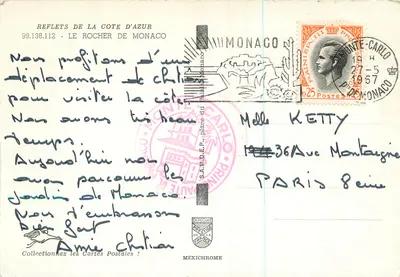 REFLETS DE LA COTE D'AZUR
99.138.112 - LE ROCHER DE MONACO
Nous profitons d'un
déplacement de christian
pour visiter la côte.
Nous avons très beau
temps.
Aujourd'hui nous
avons parcouru les
jardins de Monaco.
Nous t'embrassons
bien fort
Annie Christian
Collectionnez les Cartes Postales !
MONACO
MONTE-CARLO
19 H
27-5
1967
PTE DE MONACO
25 POSTES
MONTE-CARLO
PRINCIPAUTÉ
Melle KETTY
36 Ave Montaigne
PARIS 8eme
MEXICHROME